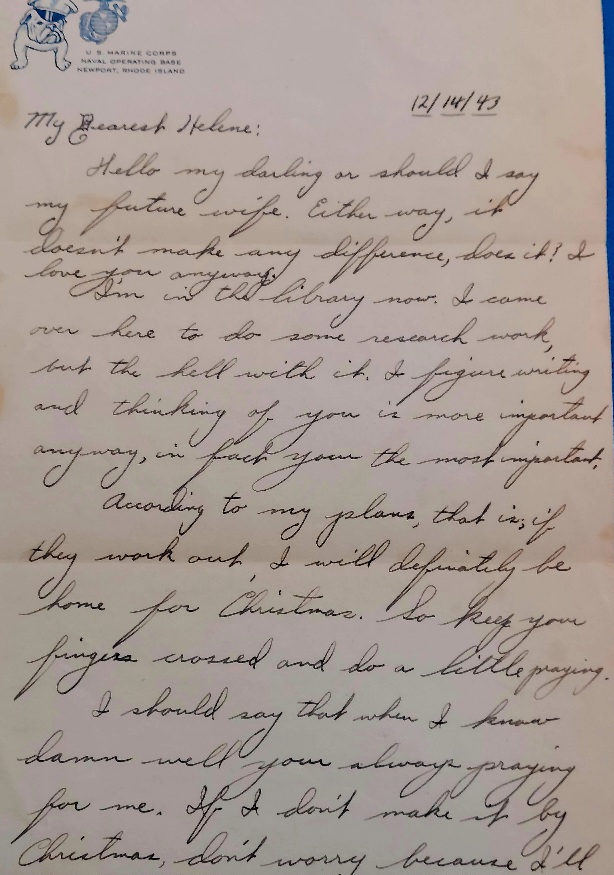 U.S. MARINE CORPS
NAVAL OPERATING BASE
NEWPORT, RHODE ISLAND
12/14/43
My Dearest Helene:
Hello my darling or should I say
my future wife. Either way, it
doesn't make any difference, does it? I
love you anyway.
I'm in the library now. I came
over here to do some research work,
but the hell with it. I figure writing
and thinking of you is more important
anyway, in fact your the most important.
According to my plans, that is, if
they work out, I will definately be
home for Christmas. So keep your
fingers crossed and do a little praying.
I should say that when I know
damn well your always praying
for me. If I don't make it by
Christmas, don't worry because I'll